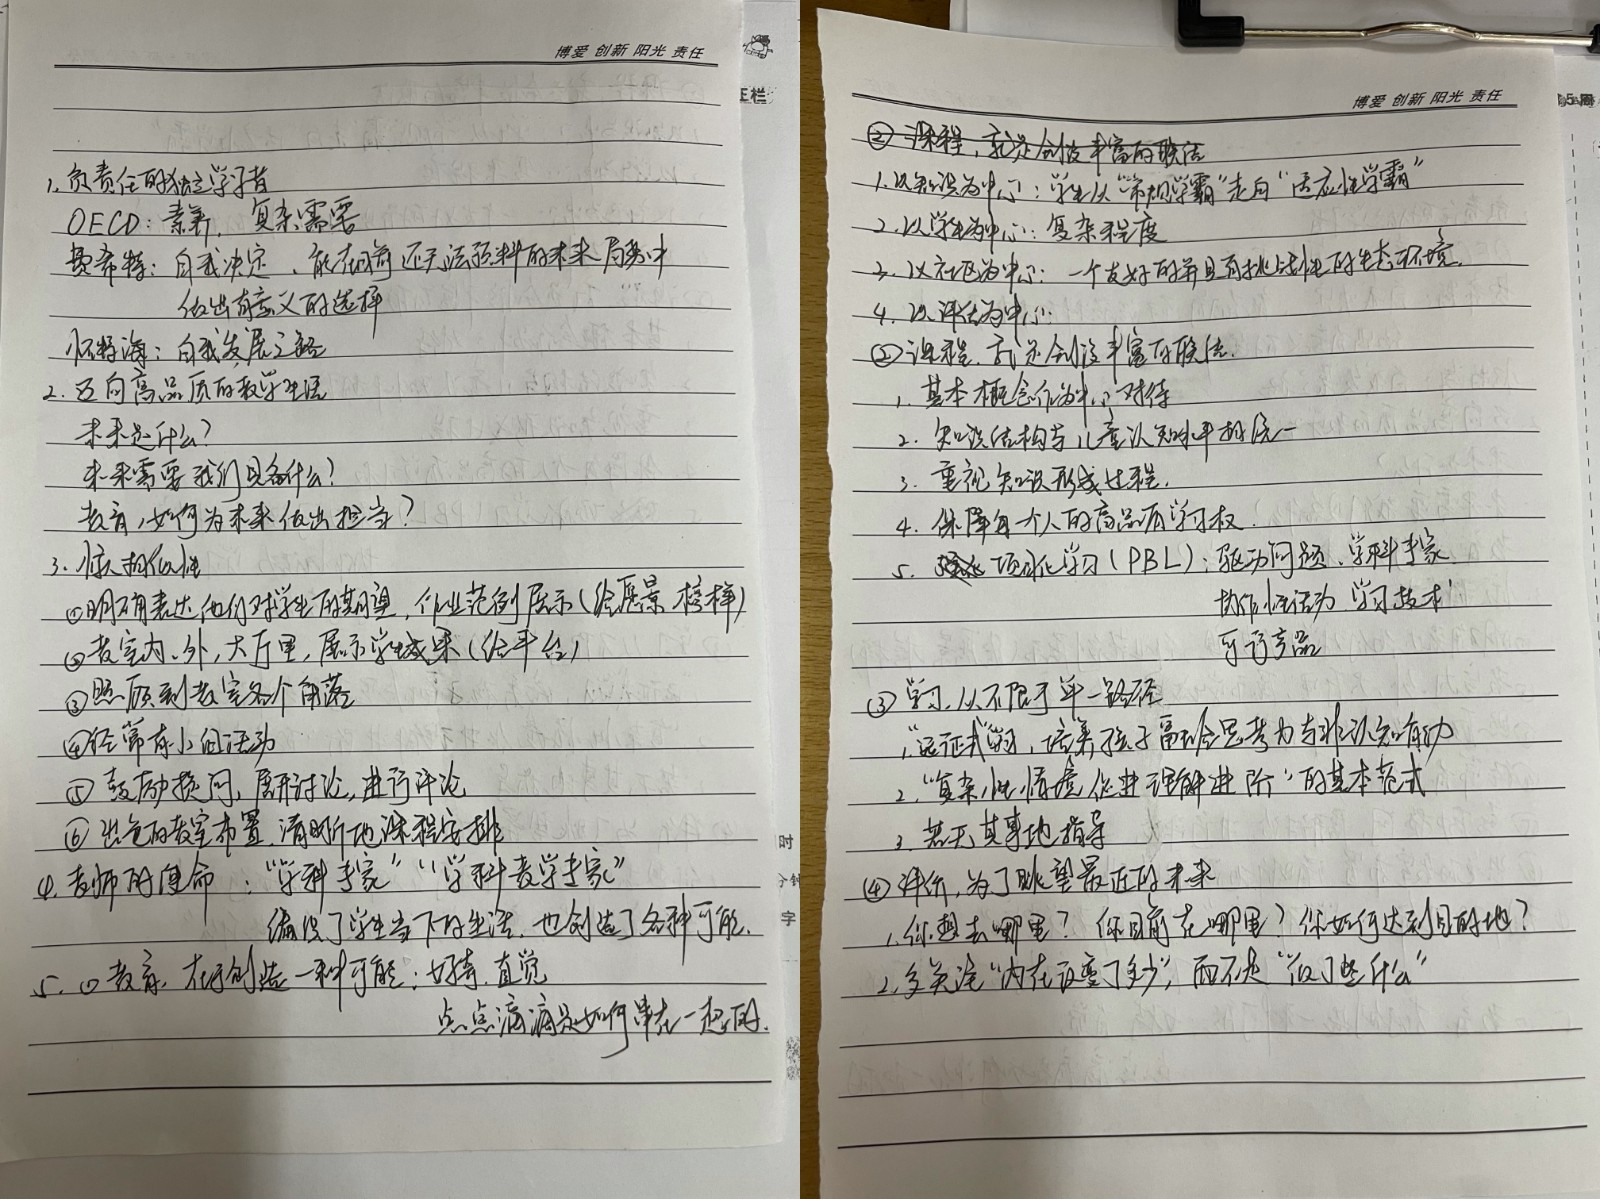 博爱 创新 阳光 责任
正栏
1. 负责任的独立学习者
OECD: 素养, 复杂需要
费希特: 自我决定、能在目前还无法预料的未来局势中
做出有意义的选择
怀特海: 自我发展之路
2. 迈向高品质的教学生活
未来是什么?
未来需要我们具备什么?
教育,如何为未来做出担当?
3. 惊人相似性
①明确表达他们对学生的期望, 作业范例展示(给愿景 榜样)
②教室内、外, 大厅里, 展示学生成果(给平台)
③照顾到教室各个角落
④经常有小组活动
⑤鼓励提问, 展开讨论, 进行评论
⑥出色的教室布置, 清晰地课程安排
4. 教师的使命: “学科专家” “学科教学专家”
编织了学生当下的生活, 也创造了各种可能.
5. ①教育, 在于创造一种可能: 好奇. 直觉
点点滴滴是如何串在一起的.
时
分钟
字
博爱 创新 阳光 责任
第5周
②课程, 就是创设丰富的联结
1. 以知识为中心: 学生从“常规学霸”走向“适应性学霸”
2. 以学生为中心: 复杂程度
3. 以社区为中心: 一个友好的并且有挑战性的生态环境.
4. 以评估为中心.
②课程, 就是创设丰富的联结.
1. 基本概念作为中心对待
2. 知识结构与儿童认知水平相统一
3. 重视知识形成过程.
4. 保障每一个人的高品质学习权.
5. 项目化学习(PBL): 驱动问题、学科专家
协作性活动 学习技术
可视产品
③学习, 从不限于单一路径
1. “远征式”学习, 培养孩子富于社会思考力与非认知能力
2. “复杂性情境, 促进理解进阶”的基本范式
3. 若无其事地指导
④评价, 为了眺望最近的未来
1. 你想去哪里? 你目前在哪里? 你如何达到目的地?
2. 多关注“内在改变了多少”, 而不是“做了些什么”